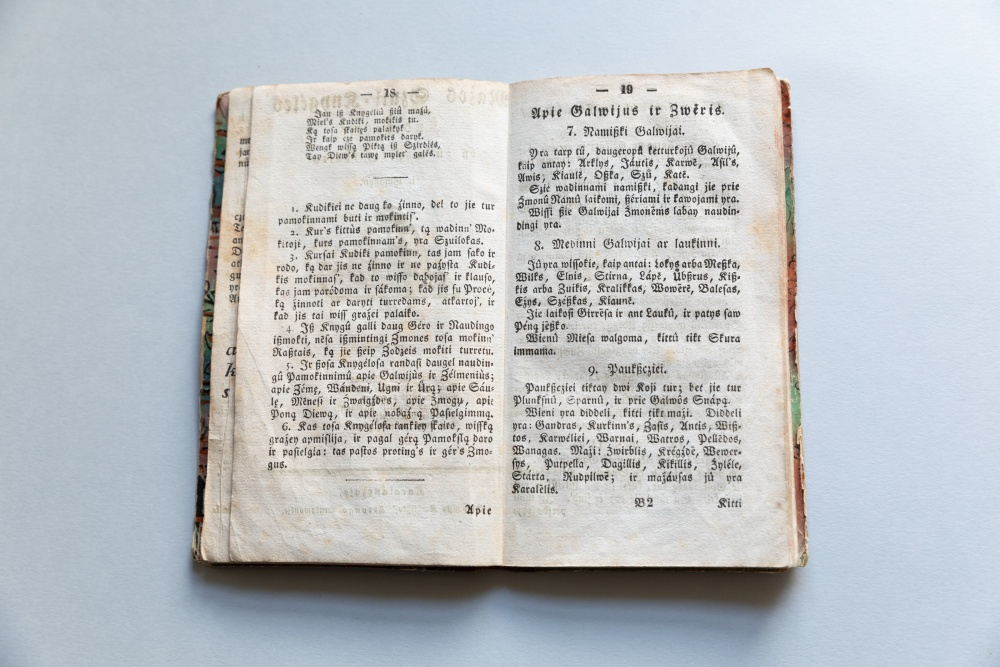 — 18 —
Jau iß Knygeliû ßiû mażû,
Miel's Kudiki, mokikis tu.
Ką tosa skaitys palaikyk
Ir kaip cze pamokits daryk.
Wengk wissą Piktą iß Szirdiės,
Tay Diew's tawę mylet' galės.
1. Kudikiei ne daug ko žinno, del to jie tur
pamokinnami buti ir mokintis'.
2. Kur's kittùs pamokinn', tą wadinn' Mo-
kitoji, kurs pamokinnam's, yra Szuilokas.
3. Kursai Kudiki pamokin, tas jam sako ir
rodo, ką dar jis ne žinno ir ne pažysta Kudi-
kis mokinnas', kad to wisso dabojas' ir klauso,
kas jam paródoma ir sákoma; kad jis su Procę,
ką žinnoti ar daryti turredams, atkartoj', ir
kad jis tai wiss' gražei palaiko.
4. Iß Knygû galli daug Géro ir Naudingo
ißmokti, nésa ißmintingi Žmones tosa mokinn'
Raßtais, ką jie ßeip Žodzeis mokiti turretu.
5. Ir ßosa Knygélosa randasi daugel naudin-
gû Pamokinnimû apie Galwijùs ir Žélmeniùs;
apie Žémę, Wándeni, Ugni ir Urą; apie Sáu-
lę, Ménesi ir Zwaigždes, apie Žmogu, apie
Poną Diewą, ir apie nobažną Pasielgimmą.
6. Kas tosa Knygélosa tankiey skaito, wisską
gražey apmislija, ir pagal gérą Pamokslą daro
ir pasielgia: tas pastos proting's ir gér's Žmo-
gus.
Apie
— 19 —
Apie Galwijus ir Zwėris.
7. Namißki Galwijai.
Yra tarp tû, daugeropû ketturkojû Galwijû,
kaip antay: Arklys, Jáutis, Karwė, Asil's,
Awis, Kiaulė, Ožka, Szû, Katė.
Szie wadinnami namißki, kadangi jie prie
Žmonû Namû laikomi, ßériami ir kawojami yra.
Wissi ßie Galwijai Žmonėms labay naudin-
dingi yra.
8. Medinni Galwijai ar laukinni.
Jû yra wissokie, kaip antai: Lokys arba Meßka,
Wilks, Elnis, Stirna, Lápė, Ubßrus, Kiß-
kis arba Zuikis, Kralikkas, Wowėrė, Balesas,
Ežys, Széßkas, Kiaunė.
Jie laikosi Girrėsa ir ant Laukû, ir patys saw
Péną jėßko.
Wienû Miesa walgoma, kittû tikt Skura
immama.
9. Paukßcziei.
Paukßcziei tiktay dwi Koji tur; bet jie tur
Plunksnû, Sparnû, ir prie Galwôs Snápą.
Wieni yra diddeli, kitti tikt maži. Diddeli
yra: Gandras, Kurkinn's, Žasis, Antis, Wiß-
tos, Karwélici, Warnai, Watros, Pellédos,
Wanagas. Maži: Žwirblis, Krégždė, Wewer-
sys, Putpella, Dagillis, Kikillis, Žylėlė,
Stárta, Rudpilwė; ir mažáusas jû yra
Karalėlis.
B2
Kitti